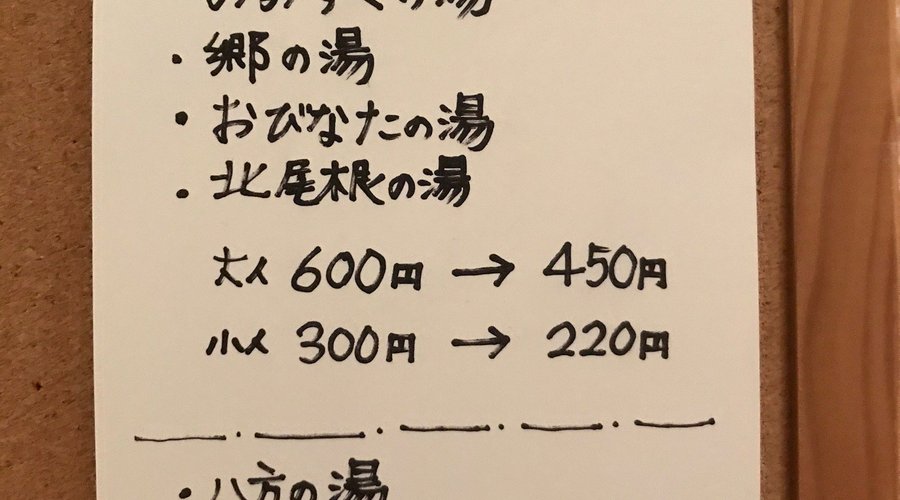 の湯
・郷の湯
・おびなたの湯
・北尾根の湯
大人 600円 → 450円
小人 300円 → 220円
・八方の湯